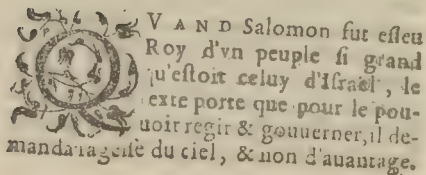 QVAND Salomon fut esleu
Roy d'vn peuple si grand
qu'estoit celuy d'Israel, le
texte porte que pour le pou-
uoir regir & gouuerner, il de-
manda sagesse du ciel, & non d'auantage.